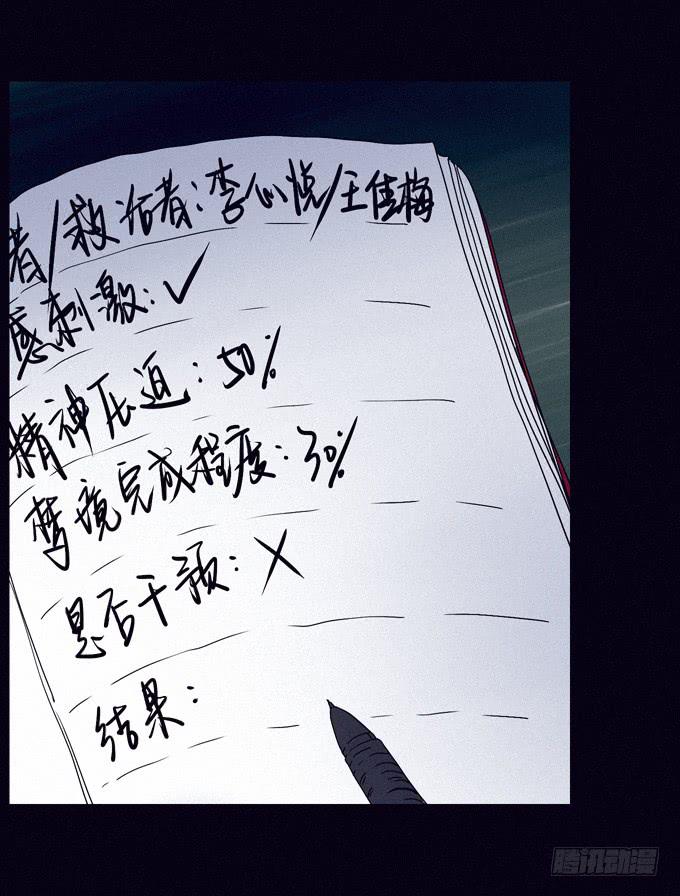 者/救治者:李心悦/王佳梅
感刺激:✓
精神压迫:50%
梦境完成程度:30%
是否干预:×
结果:
腾讯动漫